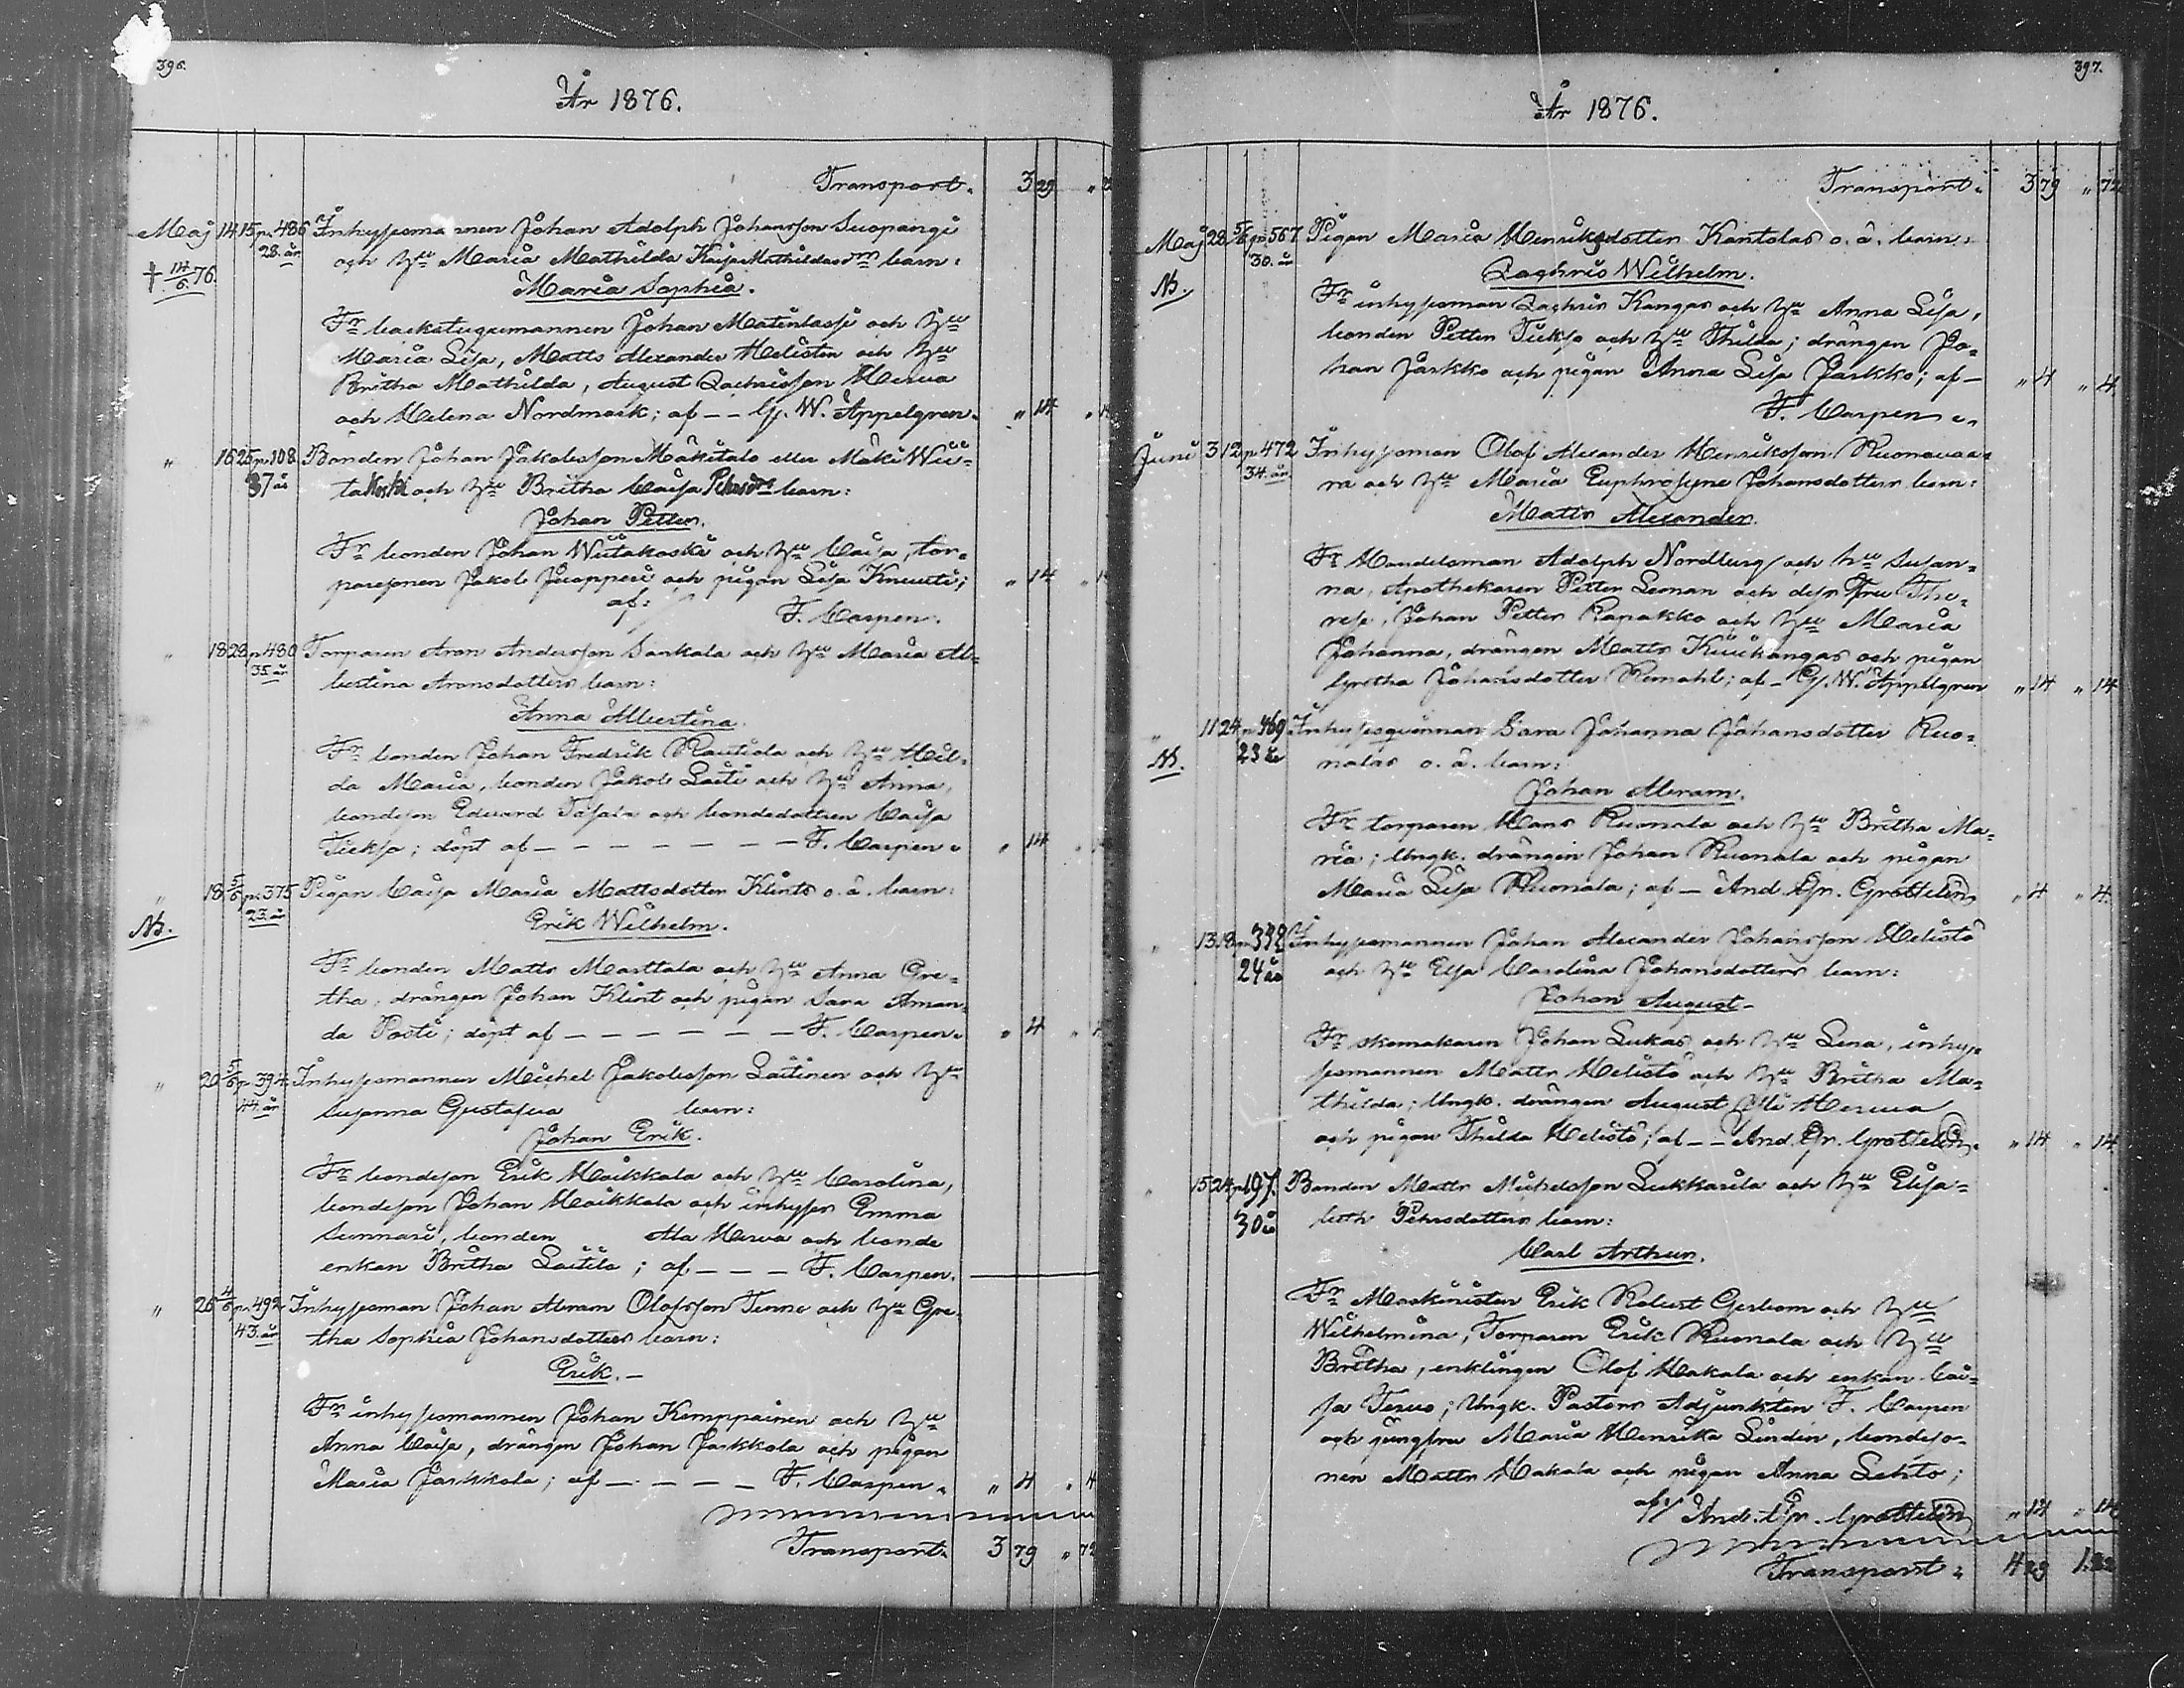 396.
År 1876.
Transport. 3 29
Maj 14 15 p. 486 Inhysesmannen Johan Adolph Johansson Suopangi
28. år och h:u Maria Mathilda Kaisa Mathildasdrs barn:
† 14/6. 76.
Maria Sophia.
Fr backstugumannen Johan Matinlassi och h:u
Maria Lisa, Matts Alexander Helistön och h:u
Britha Mathilda, August Zachrisson Herva
och Helena Nordmark; af — — Gf. W. Appelgren. " 14
" 16 25 p. 108 Bonden Johan Jakobsson Mäkitalo eller Mäki Wii-
37 år takoski och h:u Britha Caisa Pehrsdrs barn:
Johan Petter.
Fr bonden Johan Wiitakoski och h:u Caisa, tor-
paresonen Jakob Juopperi och pigan Lisa Knuuti; " 14
af: F. Carpen.
" 18 28 p. 480 Torparen Aron Andersson Sankala och h:u Maria Al-
35 år bertina Aronsdotters barn:
Anna Albertina.
Fr bonden Johan Fredrik Rautiola och h:u Hil-
da Maria, bonden Jakob Laiti och h:u Anna,
bondeson Eduard and bondedottren Caisa
Tiekso; döpt af — — — — — — — F. Carpen. " 14
" 18 5/6 p. 375 Pigan Caisa Maria Mattsdotter Klints o. ä. barn:
23. år
Nb.
Erik Wilhelm.
Fr bonden Matts Marttala och h:u Anna Gre-
tha, drängen Johan Klint och pigan Sara Aman-
da Posti; döpt af — — — — — — F. Carpen. " 4
" 20 5/6 p. 394 Inhysesmannen Michel Jakobsson Laitinen och h:u
44. år Susanna Gustafva barn:
Johan Erik.
Fr bondeson Erik Maikkala och h:u Carolina,
bondeson Johan Maikkala och inhyses Emma
Sunnari, bonden Ala Herva och bonde
enkan Britha Laitila; af — — — F. Carpen.
" 26 4/6 p. 492 Inhysesman Johan Abram Olofsson Tenno och h:u Gre-
43. år tha Sophia Johansdotters barn:
Erik. —
Fr inhysesmannen Johan Kemppainen och h:u
Anna Caisa, drängen Johan Jarkkola och pigan
Maria Jarkkola; af — — — — F. Carpen. " 4 " 4
Transport. 3 79 " 72
397.
År 1876.
Transport. 3 79 " 72
Maj 28 5/6 p. 567 Pigan Maria Henriksdotter Kantolas o. ä. barn:
30. år
Nb.
Zachris Wilhelm.
Fr inhysesman Zachris Kangas och h:u Anna Lisa,
bonden Petter Tiekso och h:u Thilda; drängen Jo-
han Jarkko och pigan Anna Lisa Jarkko; af — " 4 " 4
F. Carpen.
Juni 3 12 p. 472 Inhysesman Olof Alexander Henriksson Ruonavaa-
34. år. ra och h:u Maria Euphrosyne Johansdotters barn:
Matts Alexander.
Fr Handelsman Adolph Nordberg och h:u Susan-
na, Apothekaren Petter Leman och dess Fru The-
rese, Johan Petter Rapakko och h:u Maria
Johanna, drängen Matts Kuukangas och pigan
Gretha Johansdotter Remahl; af — Gf. W. Appelgren " 14 " 14
" 11 24 p. 469 Inhysesqvinnan Sara Johanna Johansdotter Ruo-
23 år nalas o. ä. barn:
Nb.
Johan Abram.
Fr torparen Hans Ruonala och h:u Britha Ma-
ria; Ungk. drängen Johan Ruonala och pigan
Maria Lisa Ruonala; af — And. Gr. Grottelin " 4 " 4.
" 13 18 p. 392 Inhysesmannen Johan Alexander Johansson Helistö
24 år och h:u Elsa Carolina Johansdotters barn:
Johan August.
Fr skomakaren Johan Lukas och h:u Lena, inhy-
sesmannen Matts Helistö och h:u Britha Ma-
thilda; Ungk. drängen August Herva
och pigan Thilda Helistö; af — — And. Gr. Grottelin. " 14 " 14
" 15 24 p. 197. Bonden Matts Michelsson Lukkarila och h:u Elisa-
30 år beth Pehrsdotters barn:
Carl Arthur.
Fr Maskinisten Erik Robert Gerbom och h:u
Wilhelmina, Torparen Erik Ruonala och h:u
Britha, enklingen Olof Hakala och enkan Cai-
sa Tervo; Ungk. Pastors Adjunkten F. Carpen
och jungfru Maria Henrika Lindin, bondeso-
nen Matts Hakala och pigan Anna Lehto;
af: And. Gr. Grottelin " 14 " 14
Transport. 4 29 1.22